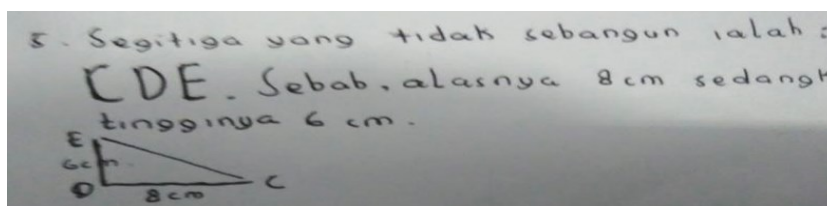 5. Segitiga yang tidak sebangun ialah :
CDE. Sebab, alasnya 8 cm sedangk
tingginya 6 cm.
E
6cm
D
8 cm
C